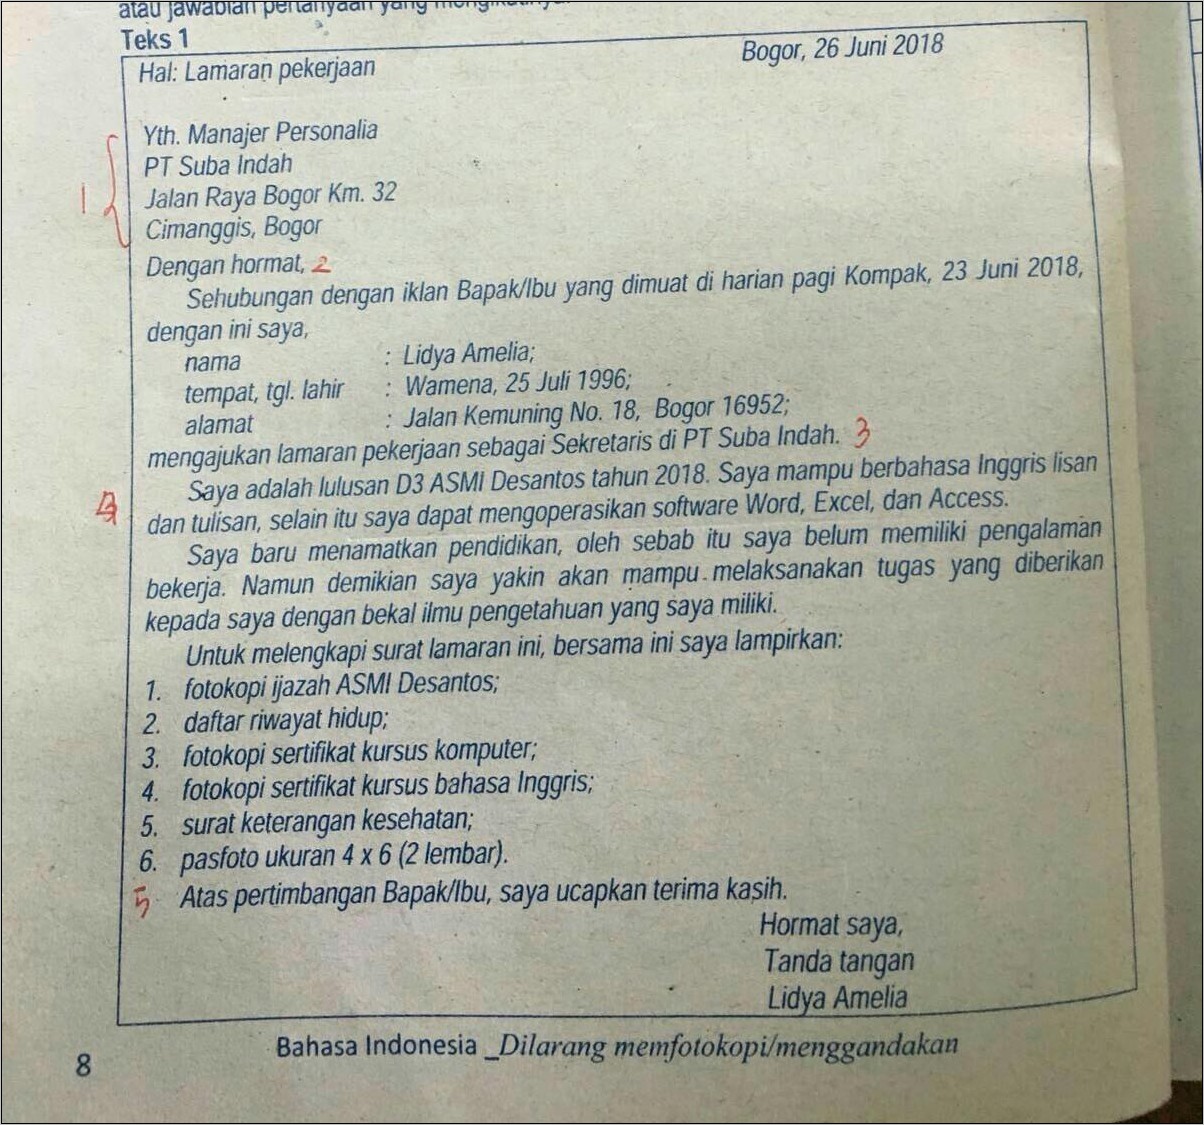 atau jawablah pertanyaan yang
Teks 1
Hal: Lamaran pekerjaan
Bogor, 26 Juni 2018
Yth. Manajer Personalia
1
PT Suba Indah
Jalan Raya Bogor Km. 32
Cimanggis, Bogor
Dengan hormat, 2
Sehubungan dengan iklan Bapak/Ibu yang dimuat di harian pagi Kompak, 23 Juni 2018,
dengan ini saya,
nama : Lidya Amelia;
tempat, tgl. lahir : Wamena, 25 Juli 1996;
alamat : Jalan Kemuning No. 18, Bogor 16952;
mengajukan lamaran pekerjaan sebagai Sekretaris di PT Suba Indah. 3
Saya adalah lulusan D3 ASMI Desantos tahun 2018. Saya mampu berbahasa Inggris lisan
dan tulisan, selain itu saya dapat mengoperasikan software Word, Excel, dan Access.
Saya baru menamatkan pendidikan, oleh sebab itu saya belum memiliki pengalaman
bekerja. Namun demikian saya yakin akan mampu melaksanakan tugas yang diberikan
kepada saya dengan bekal ilmu pengetahuan yang saya miliki.
Untuk melengkapi surat lamaran ini, bersama ini saya lampirkan:
1. fotokopi ijazah ASMI Desantos;
2. daftar riwayat hidup;
3. fotokopi sertifikat kursus komputer;
4. fotokopi sertifikat kursus bahasa Inggris;
5. surat keterangan kesehatan;
6. pasfoto ukuran 4 x 6 (2 lembar).
5 Atas pertimbangan Bapak/Ibu, saya ucapkan terima kasih.
Hormat saya,
Tanda tangan
Lidya Amelia
8
Bahasa Indonesia _Dilarang memfotokopi/menggandakan